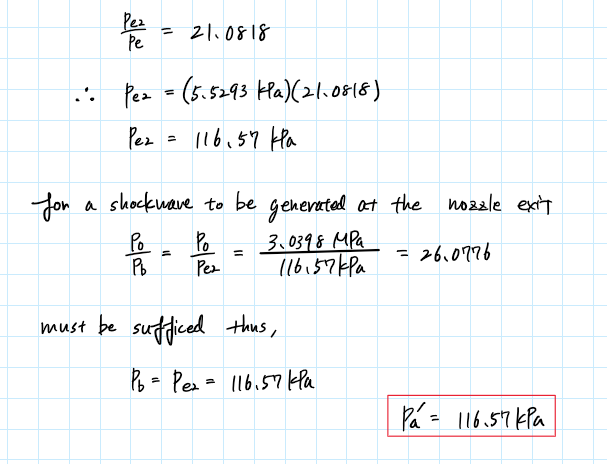 Pe2/Pe = 21.0818
∴ Pe2 = (5.5293 kPa)(21.0818)
Pe2 = 116.57 kPa
for a shockwave to be generated at the nozzle exit
Po/Pb = Po/Pe2 = 3.0398 MPa/116.57 kPa = 26.0776
must be sufficed thus,
Pb = Pe2 = 116.57 kPa
Pa' = 116.57 kPa